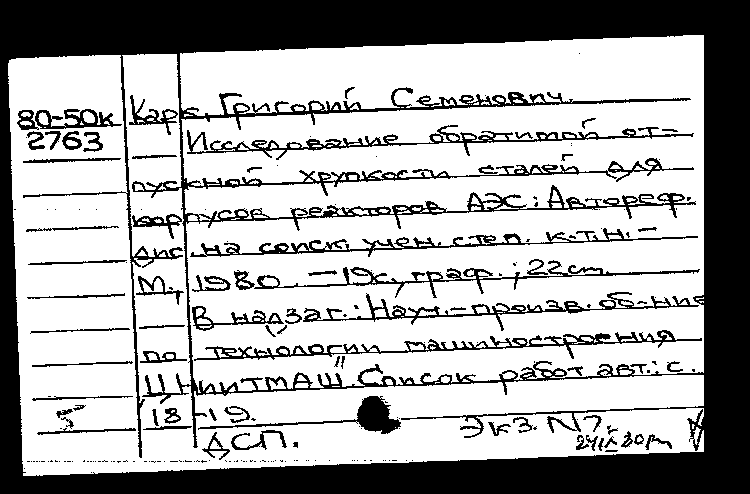 80-50к Карк, Григорий Семенович.
2763 Исследование обратимой от=
пускной хрупкости сталей для
корпусов реакторов АЭС: Автореф.
дис. на соиск. учен. степ. к.т.н. –
М., 1980. – 19с., граф.; 22см.
В надзаг.: Науч.-произв. об-ние
по технологии машиностроения
ЦНИИТМАШ". Список работ авт.: с.
5 18-19.
ДСП. Экз. N7.